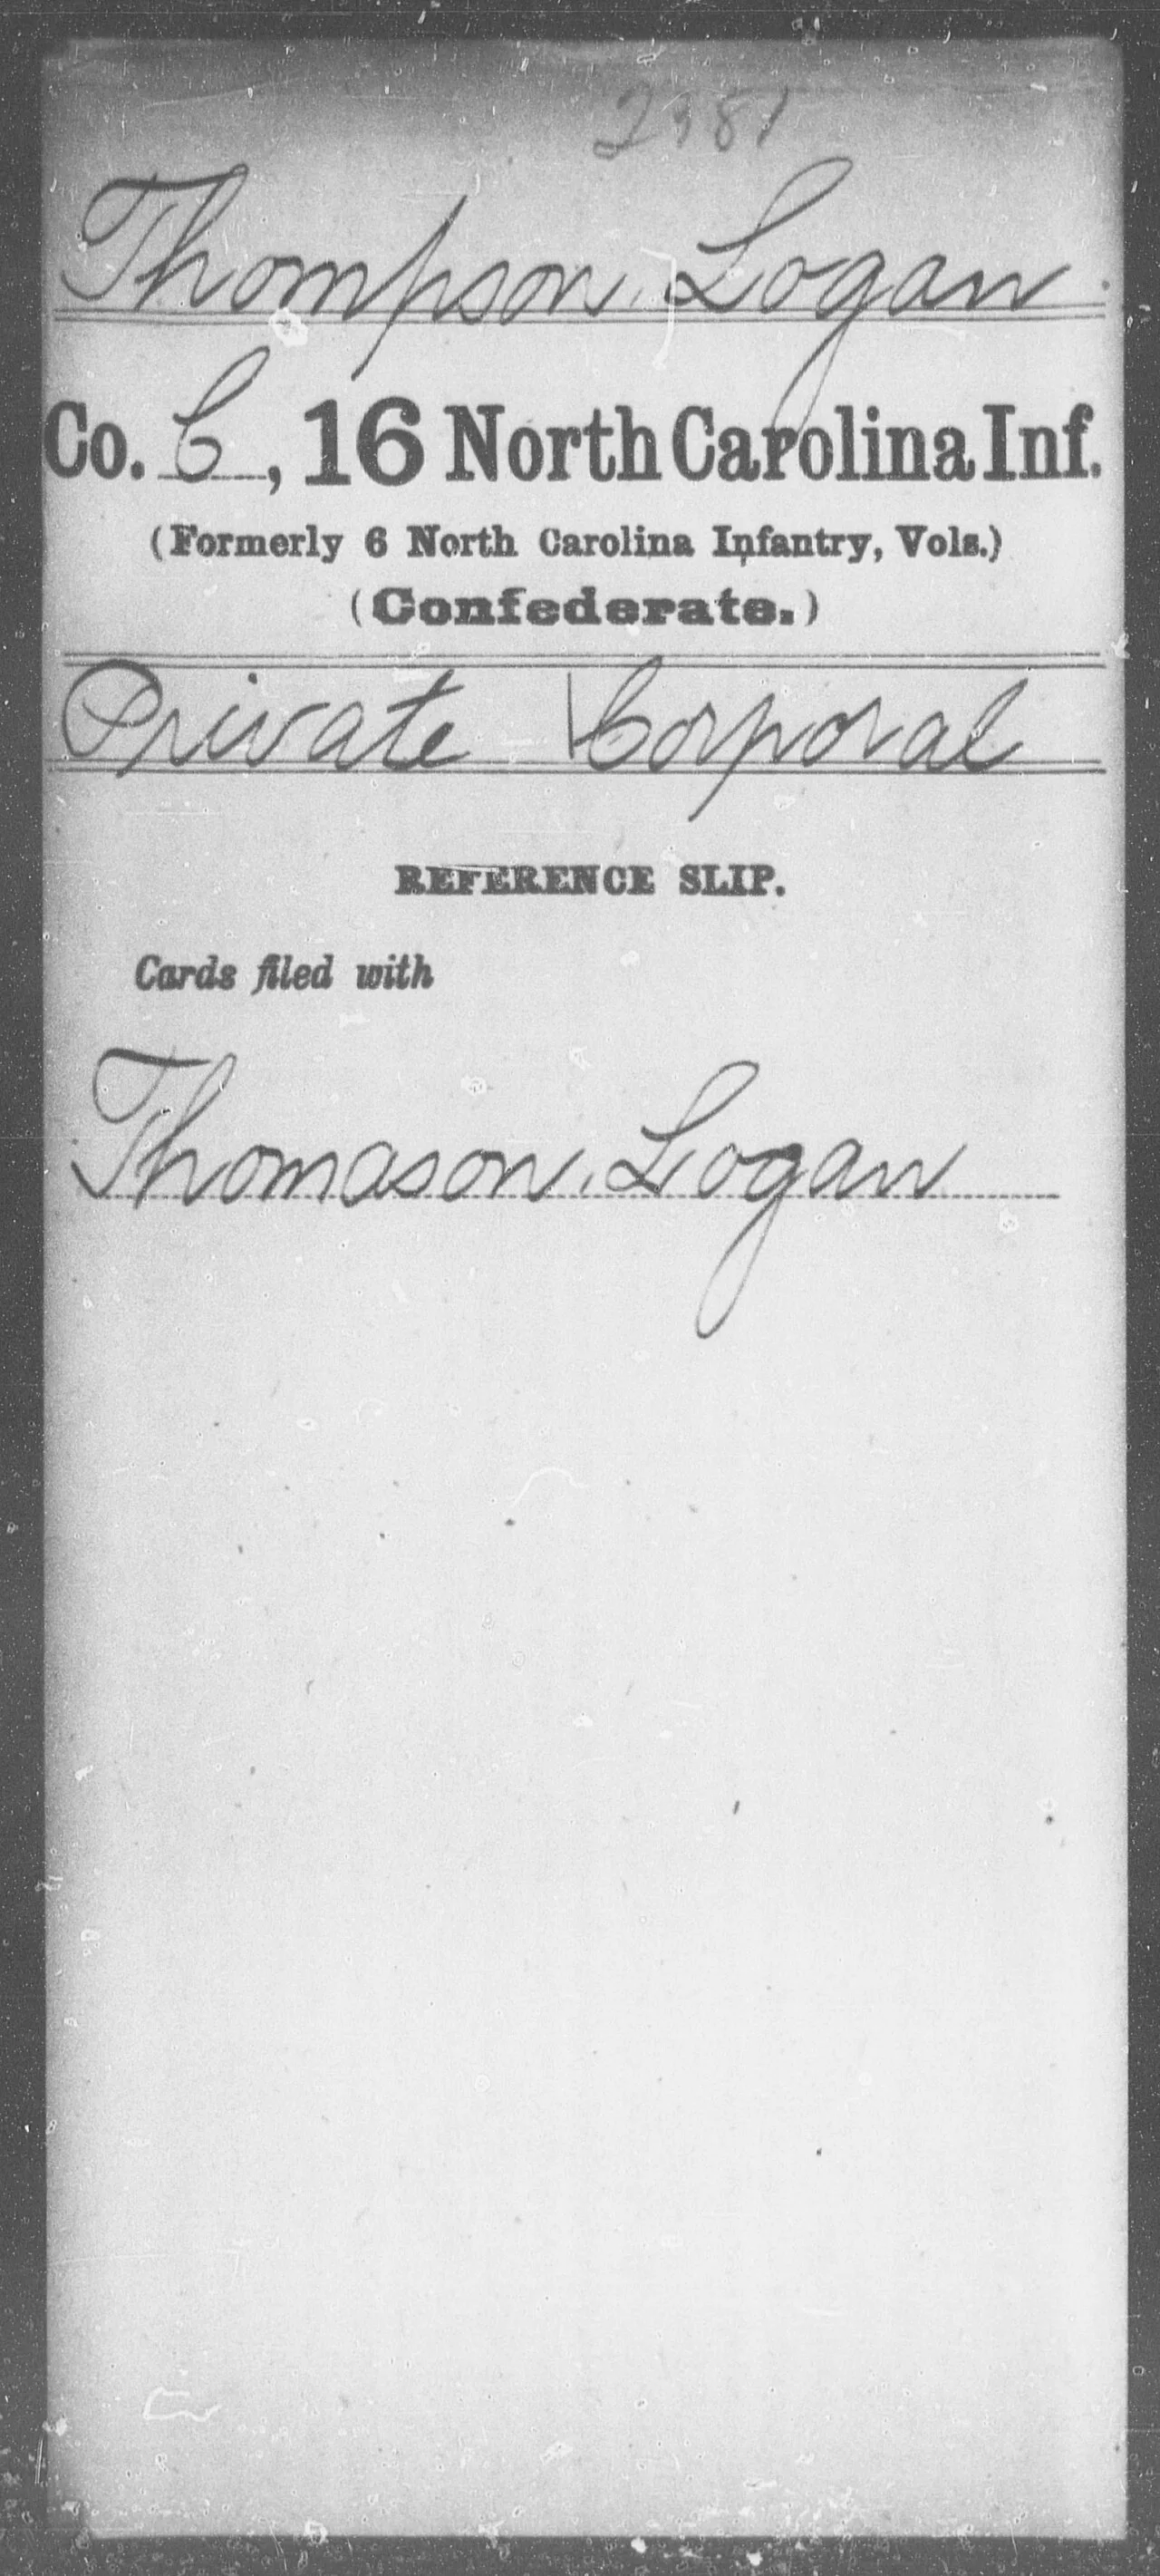 2981
Thompson, Logan.
Co. C, 16 North Carolina Inf.
(Formerly 6 North Carolina Infantry, Vols.)
(Confederate.)
Private | Corporal
REFERENCE SLIP.
Cards filed with
Thomason, Logan